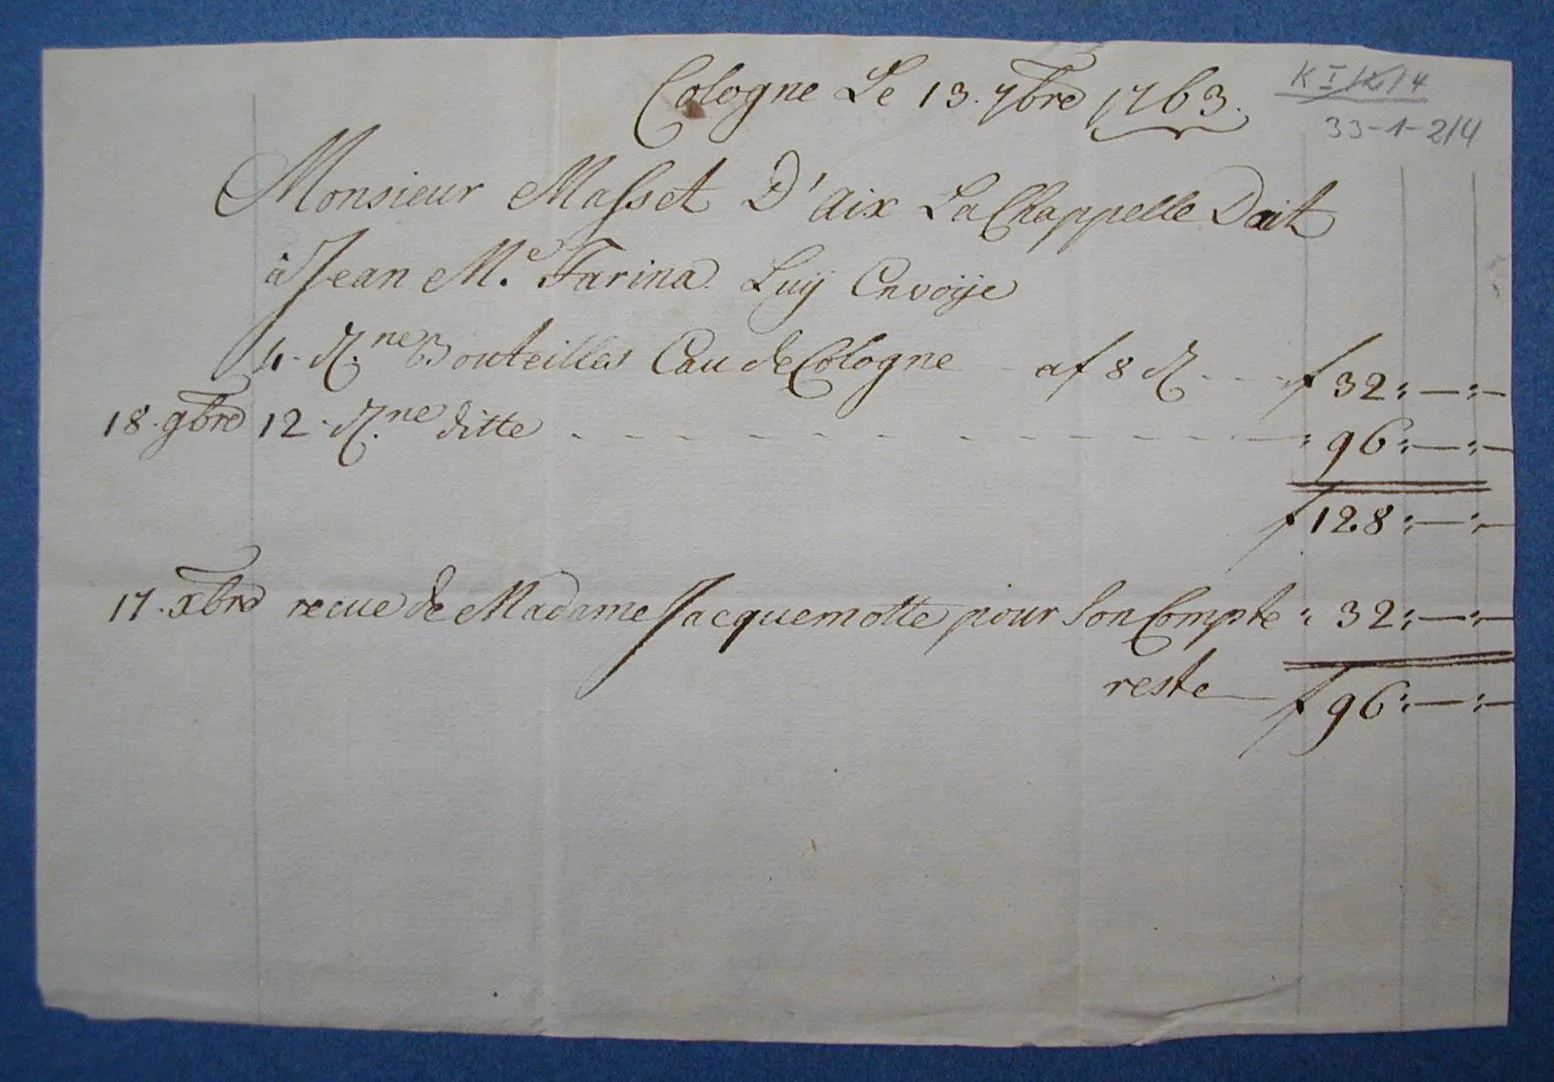 Cologne Le 13. 7bre 1763.
K I /12/4
33-1-2/4
Monsieur Masset D'aix La Chappelle Doit
à Jean M.e Farina Luÿ Envoÿe
4 - dz.ne Bouteilles Eau de Cologne - a f 8 dz - - - f 32:—:—
18. 9bre 12 - dz.ne ditte - - - - - - - - - - : 96:—:—
f 128:—:—
17. xbre recue de Madame Jacquemotte pour Son Compte : 32:—:—
reste — f 96:—:—